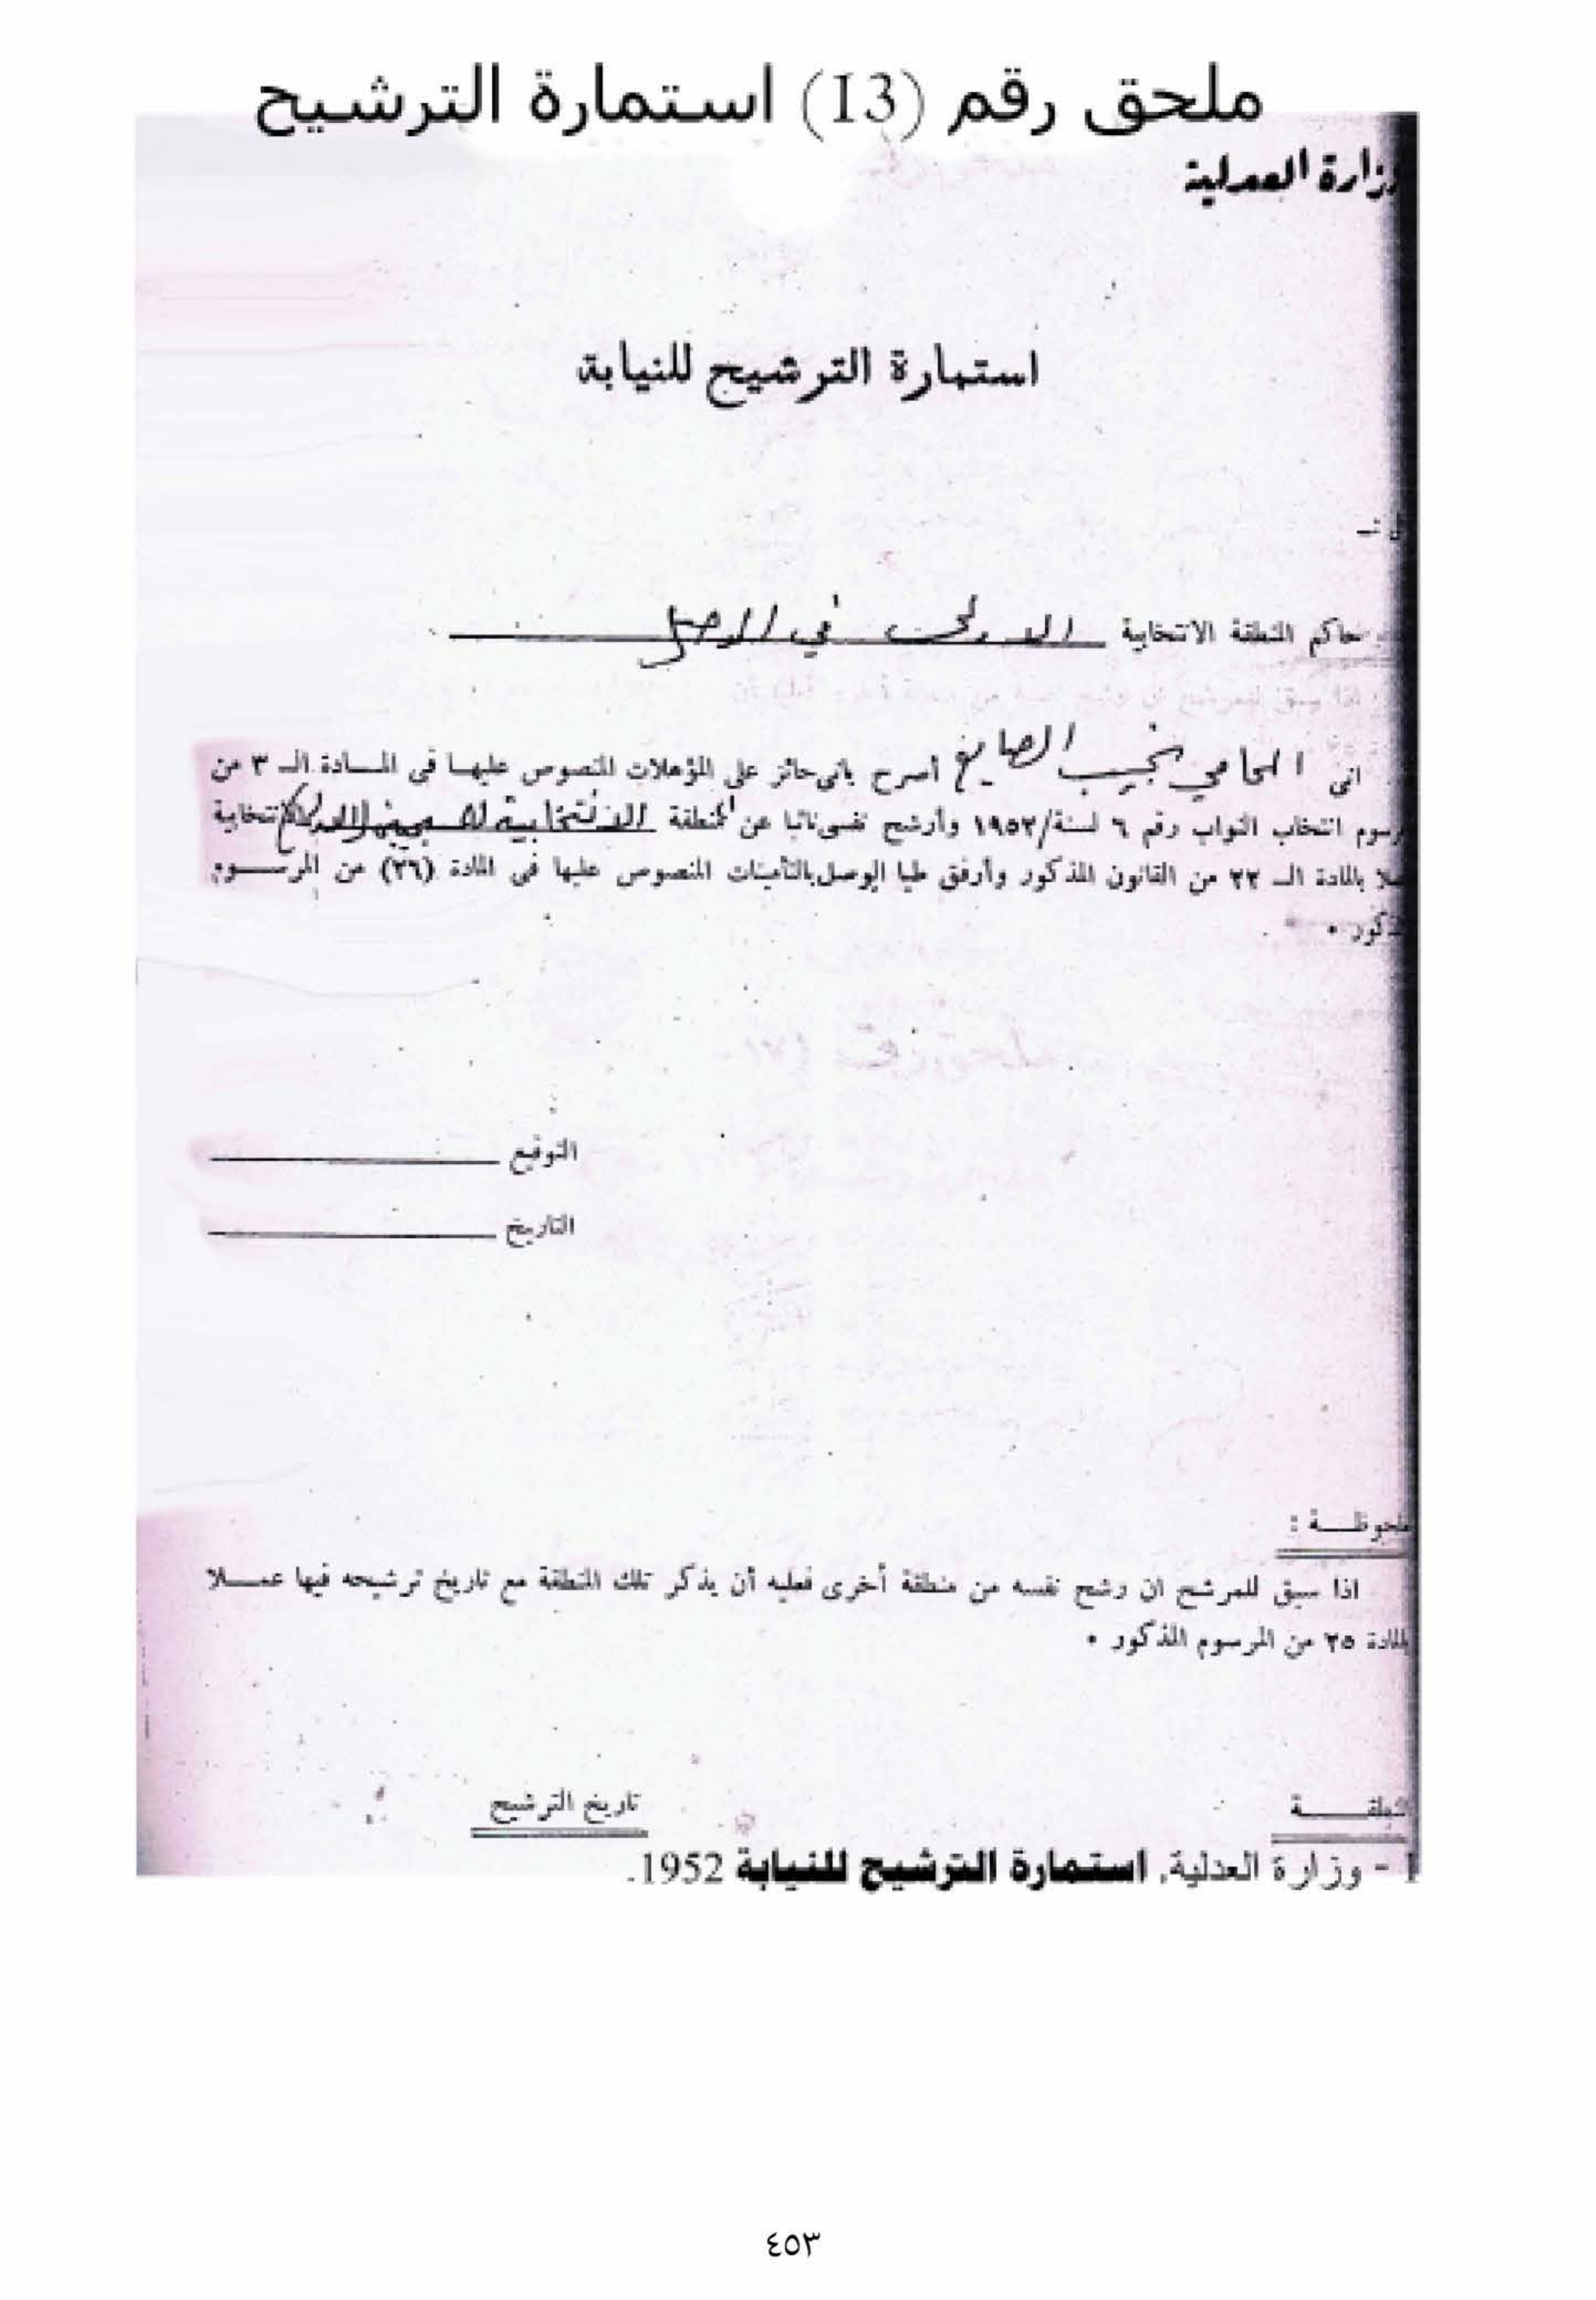 ملحق رقم (13) استمارة الترشيح
وزارة العدلية
استمارة الترشيح للنيابة
حاكم المنطقة الانتخابية الاولى في الموصل
انى المحامي نجيب الصايغ أصرح بانى حائز على المؤهلات المنصوص عليها فى المادة الـ ٣ من
مرسوم انتخاب النواب رقم ٦ لسنة/١٩٥٢ وأرشح نفسى نائبا عن المنطقة الانتخابية للمسيحيين الانتخابية
عملا بالمادة الـ ٢٢ من القانون المذكور وأرفق طيا الوصل بالتأمينات المنصوص عليها فى المادة (٢٦) من المرسوم
المذكور •
التوقيع
التاريخ
ملحوظة :
اذا سبق للمرشح ان رشح نفسه من منطقة أخرى فعليه أن يذكر تلك المنطقة مع تاريخ ترشيحه فيها عملا
بالمادة ٢٥ من المرسوم المذكور •
المنطقة تاريخ الترشيح
1 - وزارة العدلية, استمارة الترشيح للنيابة 1952.
٤٥٣